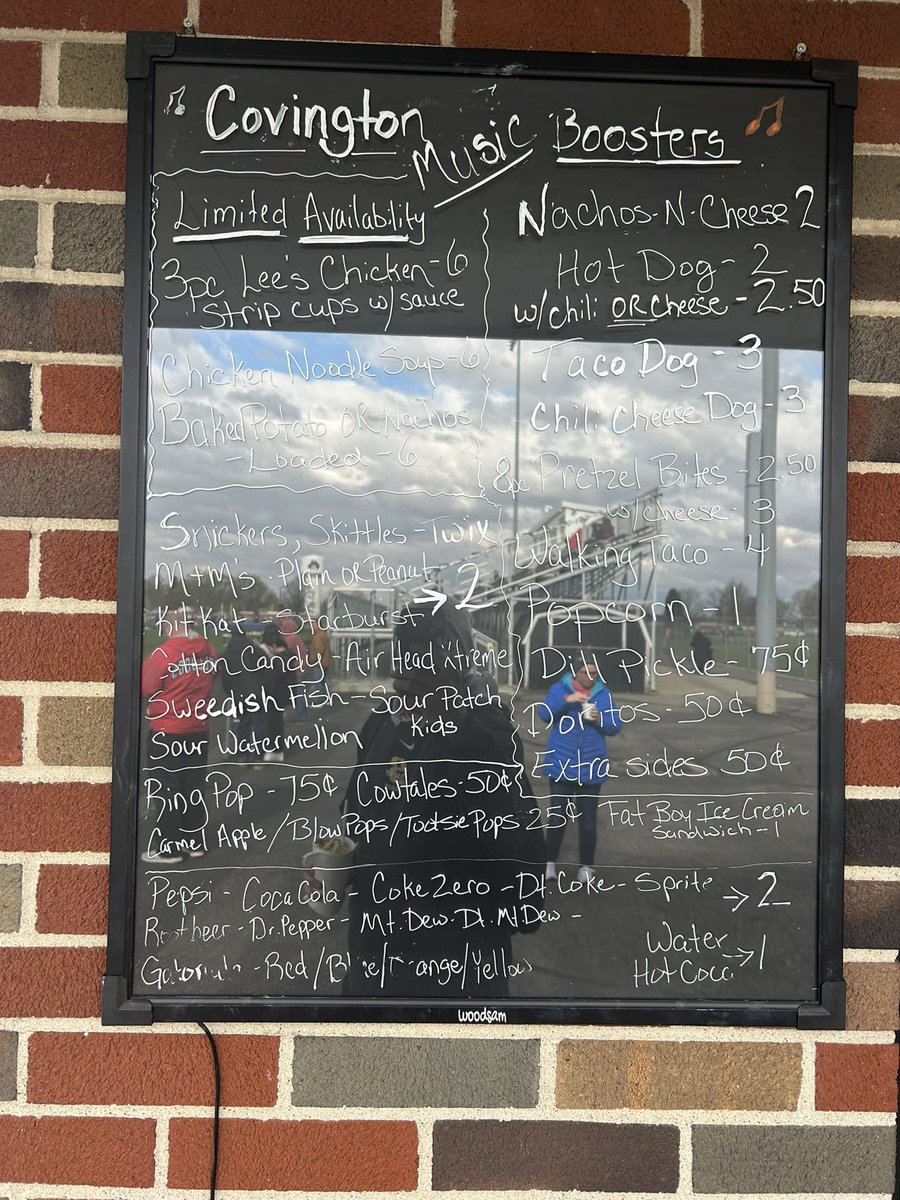 Covington Music Boosters
Limited Availability
3pc Lee's Chicken - 6
Strip cups w/ sauce
Chicken Noodle Soup - 6
Baked Potato OR Nachos
- Loaded - 6
Snickers, Skittles - Twix
M+M's - Plain OR Peanut
Kit Kat - Starburst → 2
Cotton Candy - Air Head Xtreme
Swedish Fish - Sour Patch
Kids
Sour Watermellon
Nachos-N-Cheese 2
Hot Dog - 2
w/chili OR Cheese - 2.50
Taco Dog - 3
Chili Cheese Dog - 3
8pc Pretzel Bites - 2.50
w/cheese - 3
Walking Taco - 4
Popcorn - 1
Dill Pickle - 75¢
Doritos - 50¢
Extra sides 50¢
Ring Pop - 75¢ Cowtales - 50¢
Carmel Apple / Blow Pops / Tootsie Pops 25¢
Fat Boy Ice Cream
Sandwich - 1
Pepsi - Coca Cola - Coke Zero - Dt. Coke - Sprite → 2
Root beer - Dr. Pepper - Mt. Dew - Dt. Mt Dew -
Red / Blue / Orange / Yellow
Water → 1
Hot Coco
woodsam